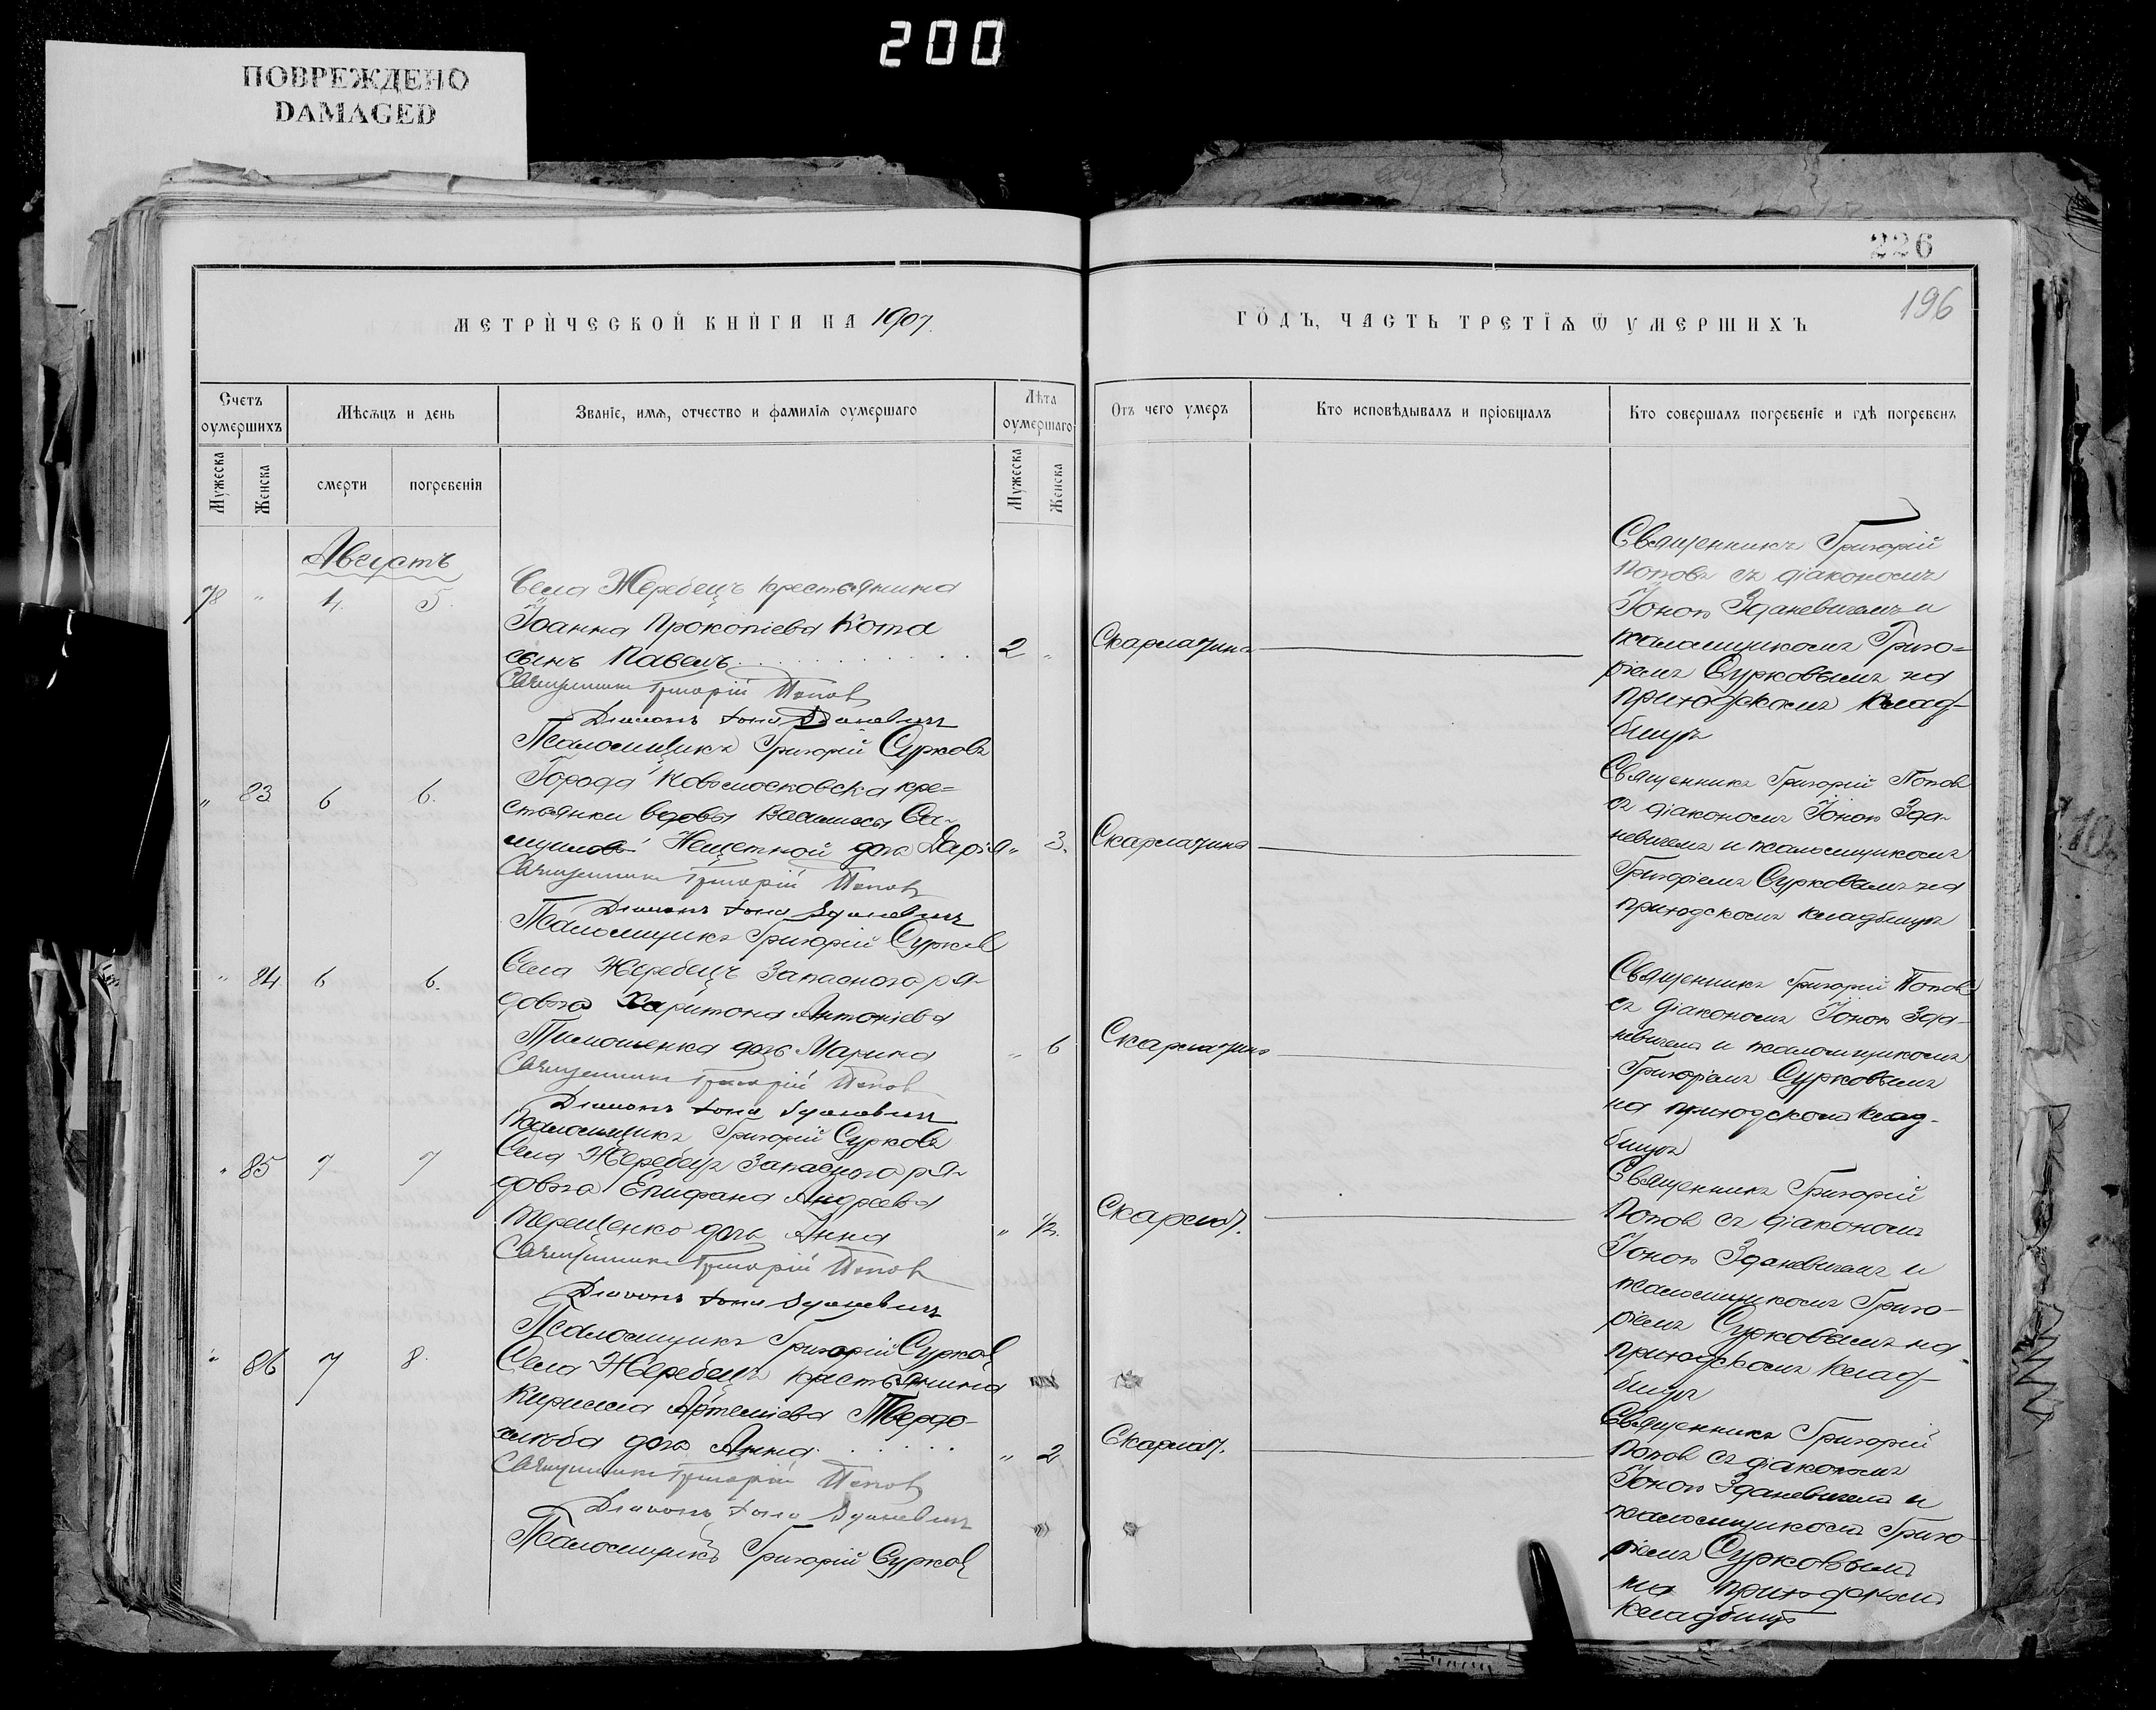 200
ПОВРЕЖДЕНО
DAMAGED
226
196
МЕТРИЧЕСКОЙ КНИГИ НА 1907.
ГОДЪ, ЧАСТЬ ТРЕТІѦ Ѿ УМЕРШИХЪ
Счетъ оумершихъ
Мѣсѧцъ и день
Званіе, имѧ, отчество и фамиліѧ оумершаго
Лѣта оумершаго
Отъ чего умеръ
Кто исповѣдывалъ и пріобщалъ
Кто совершалъ погребеніе и гдѣ погребенъ
Мужеска
Женска
смерти
погребенія
Мужеска
Женска
Августъ
78 " 4. 5.
Села Жеребецъ крестьянина
Іоанна Прокопіева Кота
сынъ Павелъ
2 "
Скарлатина
Священникъ Григорій Попов
Діаконъ Іона Зданевичъ
Псаломщикъ Григорій Сурковъ
Священникъ Григорій
Поповъ съ діакономъ
Іоною Зданевичемъ и
псаломщикомъ Григо=
ріемъ Сурковымъ на
приходскомъ клад-
бищѣ
" 83 6 6.
Города Новомосковска кре=
стьянки вдовы
Нещетной дочь Дарія
" 3.
Скарлатина
Священникъ Григорій Попов
Діаконъ Іона Зданевичъ
Псаломщикъ Григорій Сурков
Священникъ Григорій Попов
съ діакономъ Іоною Зда-
невичемъ и псаломщикомъ
Григоріемъ Сурковымъ на
приходскомъ кладбищѣ
" 84. 6 6.
Села Жеребецъ запасного ря-
дового Харитона Антоніева
Тимошенка дочь Марина
" 6
Скарлатина
Священникъ Григорій Попов
Діаконъ Іона Зданевичъ
Псаломщикъ Григорій Сурковъ
Священникъ Григорій Попов
съ діакономъ Іоною Зда-
невичемъ и псаломщикомъ
Григоріемъ Сурковымъ
на приходскомъ клад-
бищѣ
" 85 7 7
Села Жеребецъ запасного ря-
дового Епифана Андреева
Терещенко дочь Анна
" 1/2.
Скарлат.
Священникъ Григорій Попов
Діаконъ Іона Зданевичъ
Псаломщикъ Григорій Сурков
Священникъ Григорій
Попов съ діакономъ
Іоною Зданевичемъ и
псаломщикомъ Григо-
ріемъ Сурковымъ на
приходскомъ клад-
бищѣ
" 86 7 8.
Села Жеребецъ крестьянина
Кирилла Артеміева Твердо-
хлѣба дочь Анна
" 2
Скарлат.
Священникъ Григорій Попов
Діаконъ Іона Зданевичъ
Псаломщикъ Григорій Сурков
Священникъ Григорій
Попов съ діакономъ
Іоною Зданевичемъ и
псаломщикомъ Григо-
ріемъ Сурковымъ
на приходскомъ
кладбищѣ